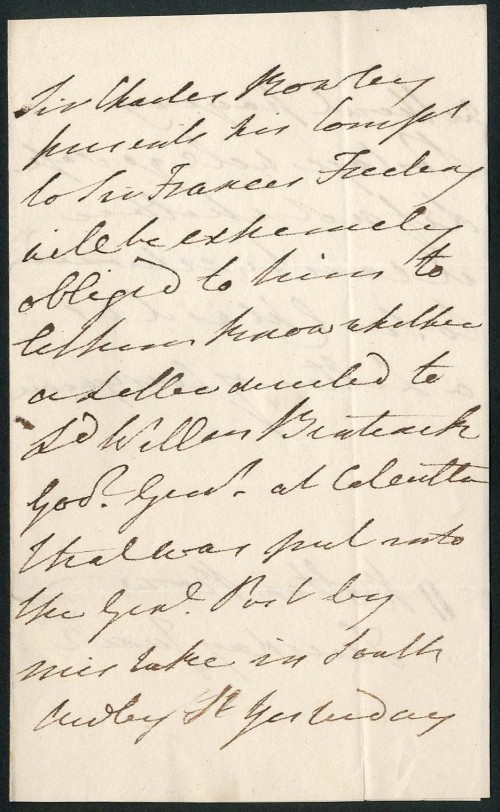 Sir Charles Rowley
presents his Compts
to Sir Frances Freeling
will be extremely
obliged to him to
let him know whether
a Letter directed to
Ld Willam Bentinck
Govr. Genl. at Calcutta
that was put into
the Genl. Post by
mistake in South
Audley St Yesterday